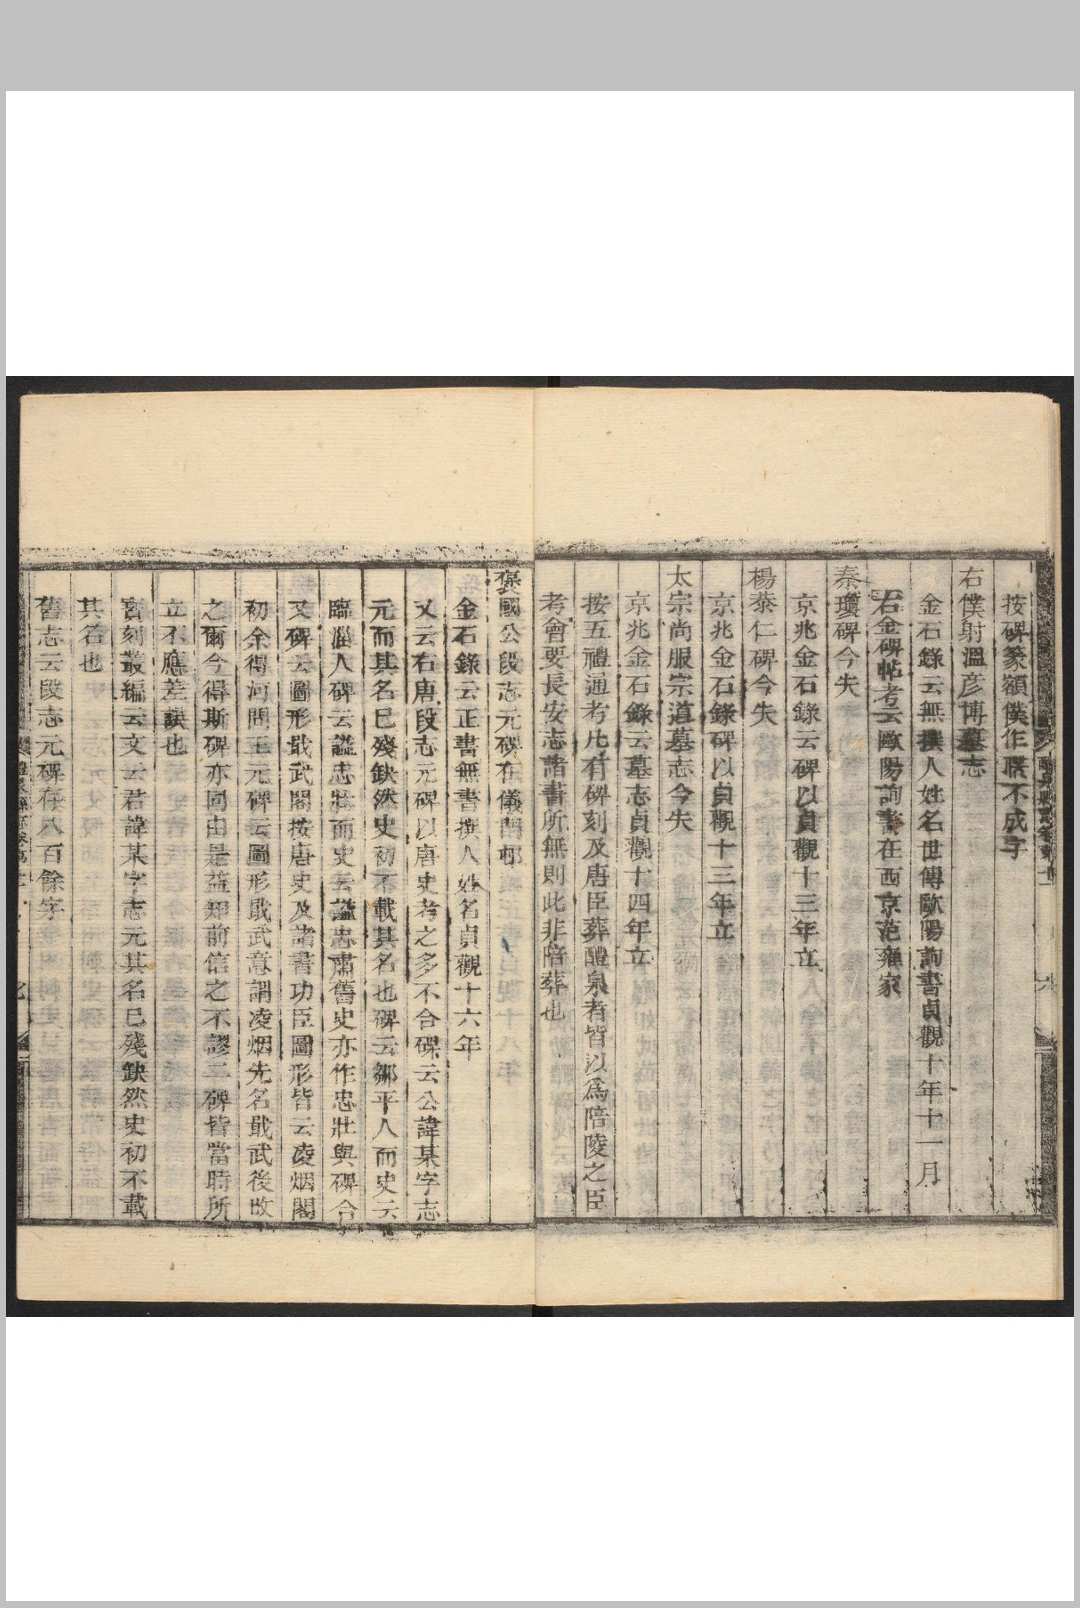 按碑篆額僕作㒒不成字
右僕射溫彥博墓志
金石錄云無撰人姓名世傳歐陽詢書貞觀十年十一月
石金碑帖考云歐陽詢書在西京范雍家
秦瓊碑今失
京兆金石錄云碑以貞觀十三年立
楊恭仁碑今失
京兆金石錄碑以貞觀十三年立
太宗尚服宗道墓志今失
京兆金石錄云墓志貞觀十四年立
按五禮通考凡有碑刻及唐臣葬醴泉者皆以為陪陵之臣
考會要長安志諸書所無則此非陪葬也
褒國公段志元碑在儀門邨
金石錄云正書無書撰人姓名貞觀十六年
又云右唐段志元碑以唐史考之多不合碑云公諱某字志
元而其名已殘缺然史初不載其名也碑云鄒平人而史云
臨淄人碑云諡忠壯而史云諡忠肅舊史亦作忠壯與碑合
又碑云圖形戢武閣按唐史及諸書功臣圖形皆云凌烟閣
初余得河間王元碑云圖形戢武意謂凌烟先名戢武後改
之爾今得斯碑亦同由是益知前信之不謬二碑皆當時所
立不應差誤也
寶刻叢編云文云君諱某字志元其名已殘缺然史初不載
其名也
舊志云段志元碑存八百餘字